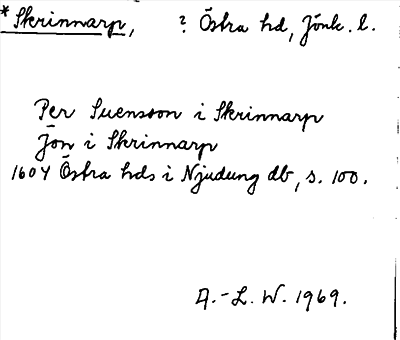 * Skrinnarp, ? Östra hd, Jönk. l.
Per Suensson i Skrinnarp
Jon i Skrinnarp
1604 Östra hds i Njudung db, s. 100.
A.-L. W. 1969.